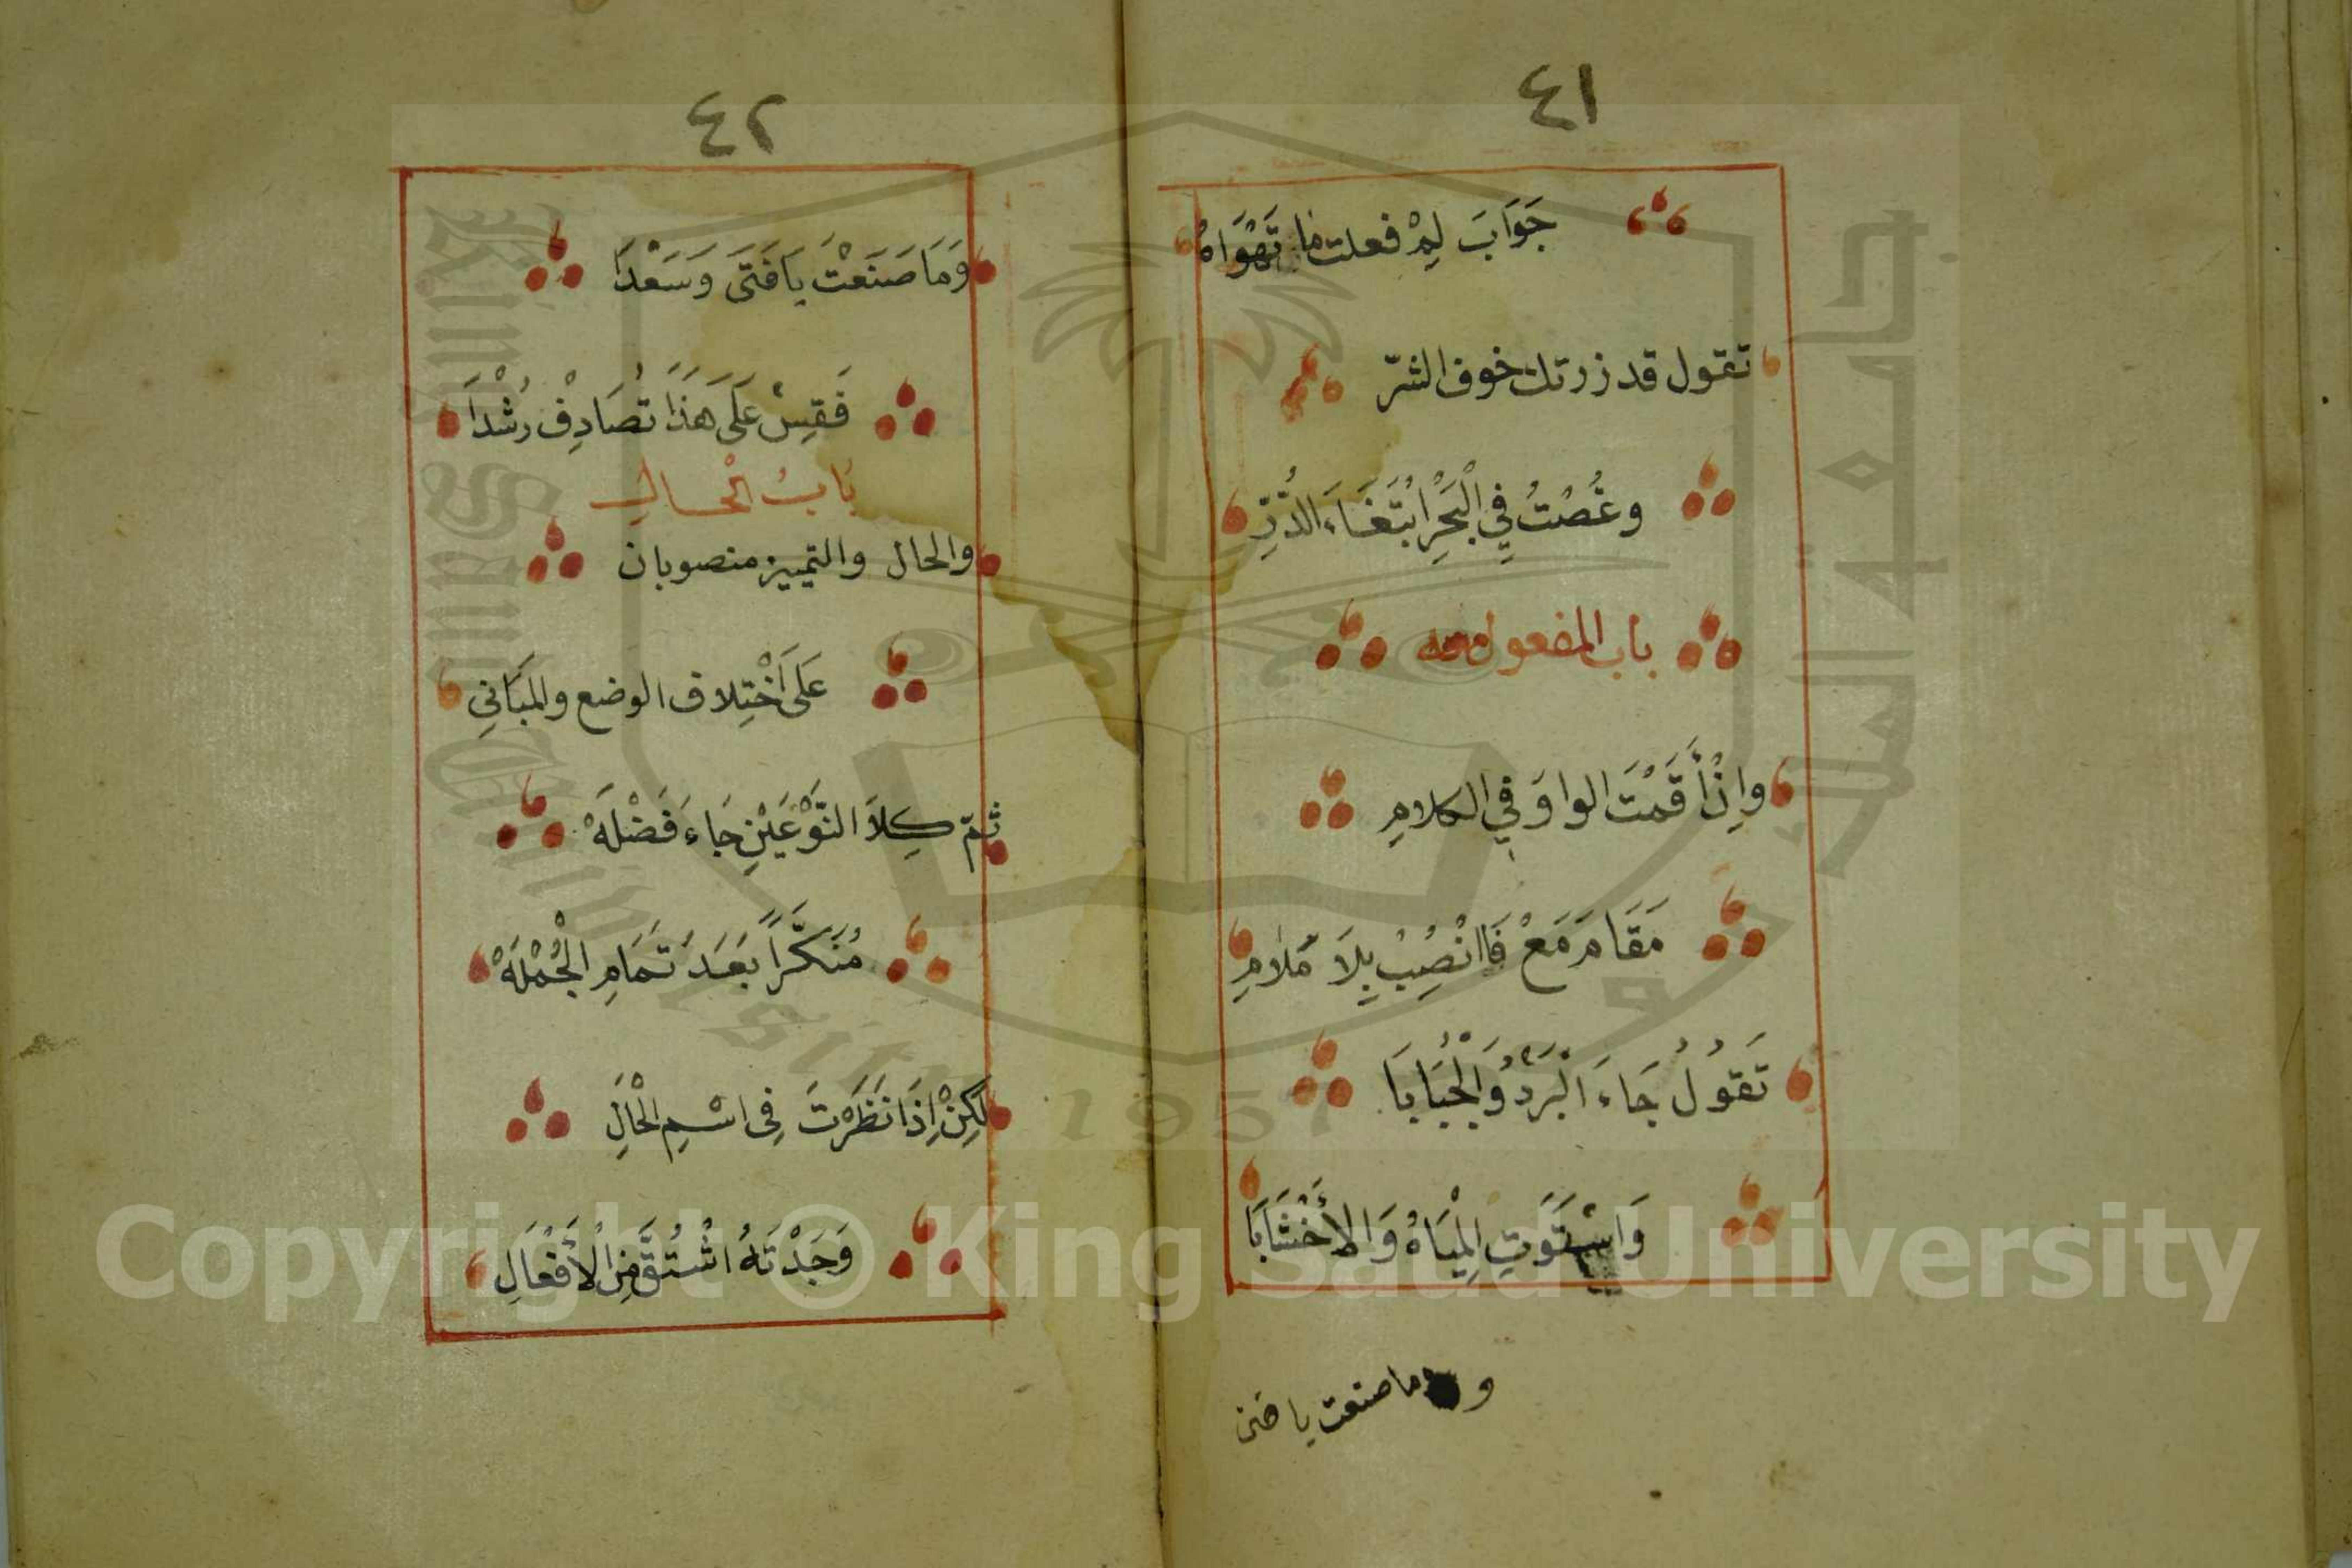 ٤١
جَوَابَ لِمْ فعلت ما تَهْوَاهُ
تقول قد زرتك خوف الشرّ
وغُصْتُ فِي الْبَحْرِ ابْتَغَاءَ الدُّرِّ
باب المفعول معه
وإِنْ أَقَمْتَ الواوَ فِي الكلامِ
مَقَامَ مَعْ فَاانْصِبْ بِلَا مَلَامِ
تَقُولُ جَاءَ الْبَرْدُ وَالْجُبَابَا
وَاسْتَوَتِ الْمِيَاهُ وَالأَخْشَابَا
و وما صنعت يا فتى
٤٢
وَمَا صَنَعْتَ يَا فَتَى وَسَعْدَا
فَقِسْ عَلَى هَذَا تُصَادِفْ رُشْدَا
بَابُ الْحَالِ
والحال والتمييز منصوبان
عَلَى اخْتِلاف الوضع والمَبَانِي
ثمّ كِلَا النَّوْعَيْنِ جَاءَ فَضْلَهْ
مُنَكَّرًا بَعَدَ تَمَامِ الْجُمْلَهْ
لَكِنْ إِذَا نَظَرْتَ فِى اسْمِ الْحَالِ
وَجَدْتَهُ اشْتُقَّ مِنَ الْأَفْعَالِ
Copyright © King Saud University
1957